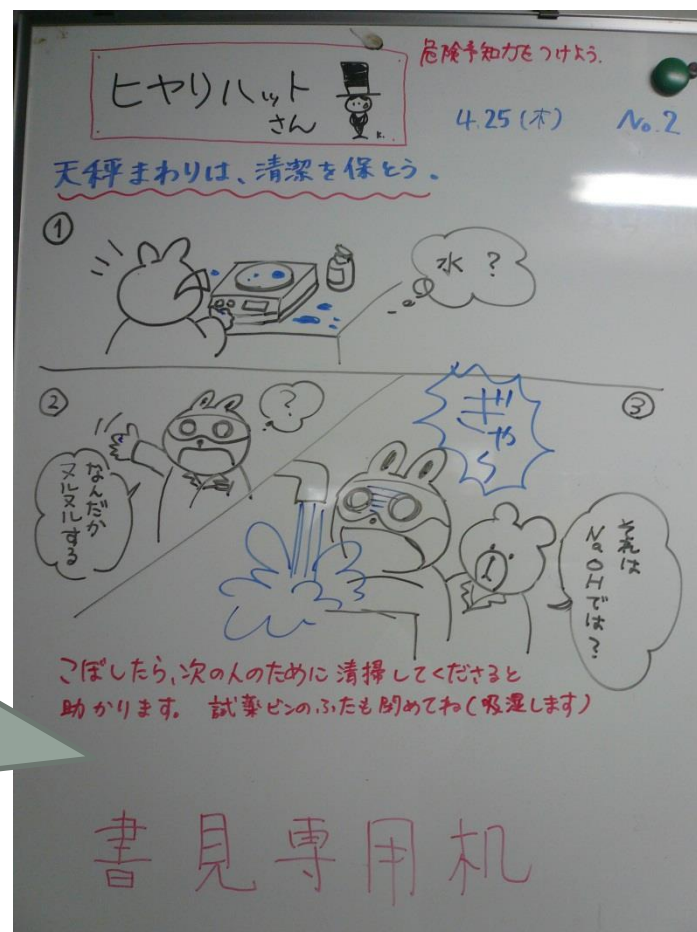 危険予知力をつけよう.
ヒヤリハット
さん
K.
4.25(木) No.2
天秤まわりは、清潔を保とう。
①
水 ?
②
?
なんだか
ヌルヌルする
③
ぎゃぁ
それは
NaOHでは?
こぼしたら、次の人のために清掃してくださると
助かります。 試薬ビンのふたも閉めてね(吸湿します)
書見専用机